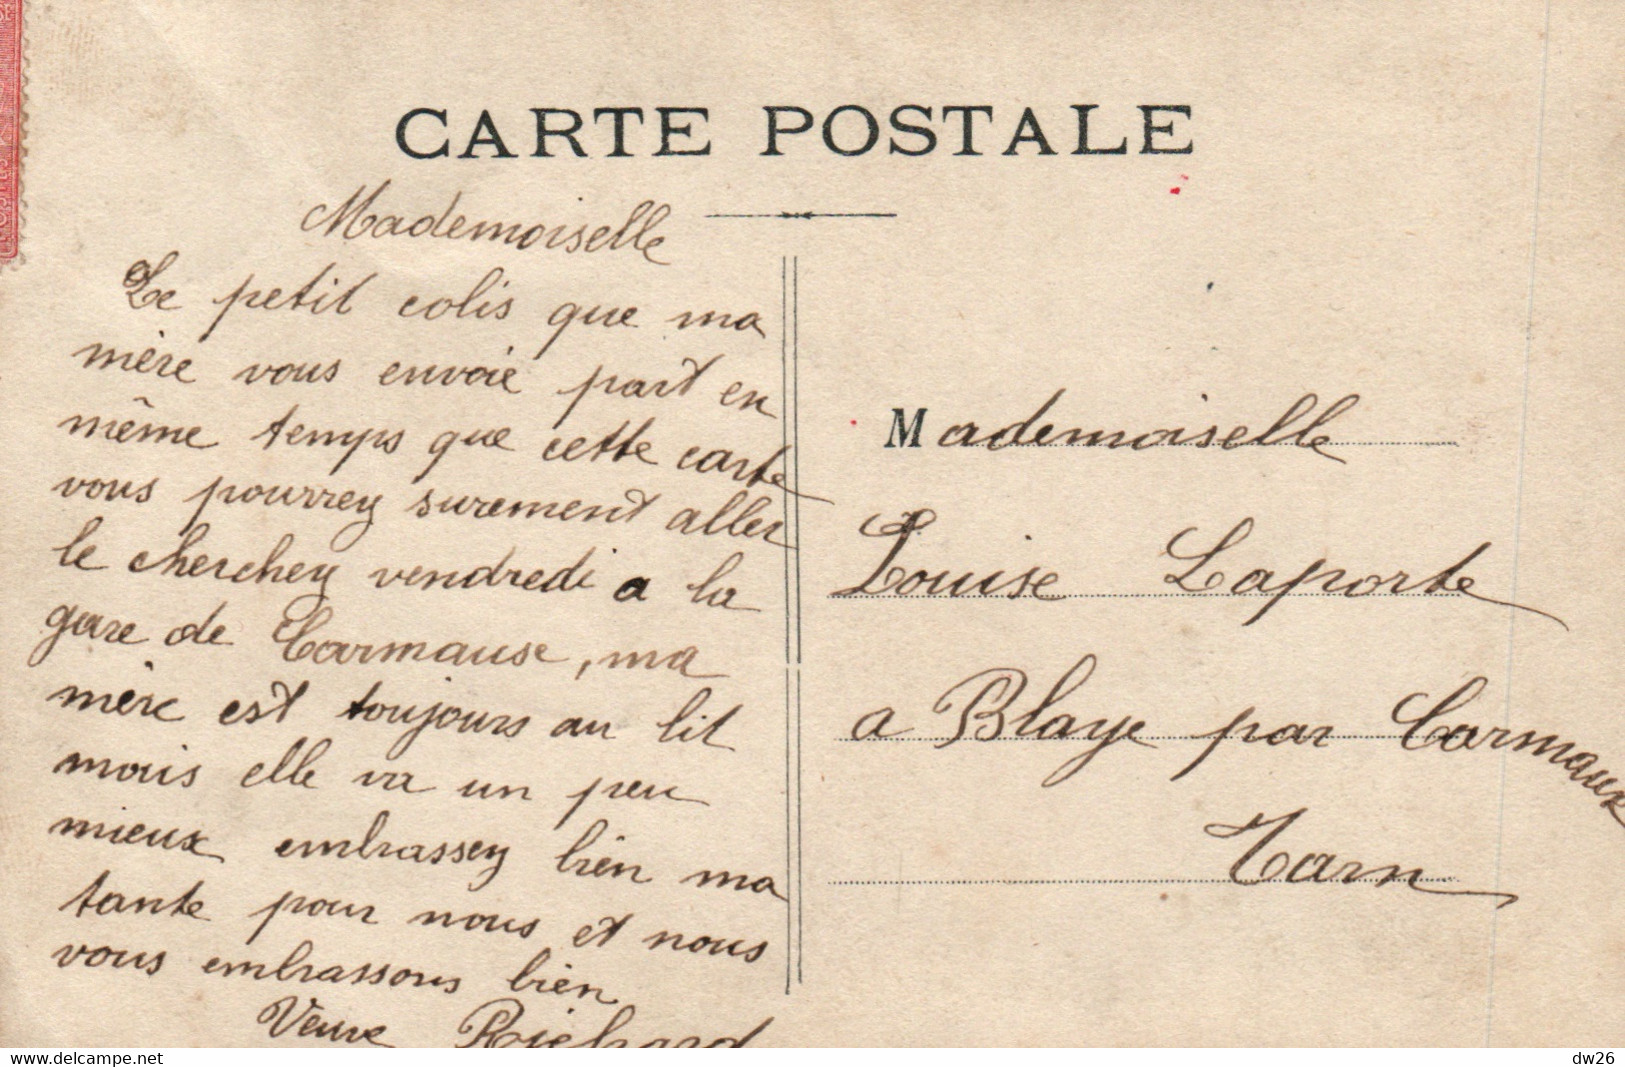 CARTE POSTALE
Mademoiselle
Le petit colis que ma
mère vous envoie part en
même temps que cette carte
vous pourrey surement aller
le cherchey vendredi a la
gare de Carmause, ma
mère est toujours au lit
mais elle va un peu
mieux embrassey bien ma
tante pour nous et nous
vous embrassons bien
Veuve Richard
Mademoiselle
Louise Laporte
a Blaye par Carmaux
Tarn
delcampe.net
dw26